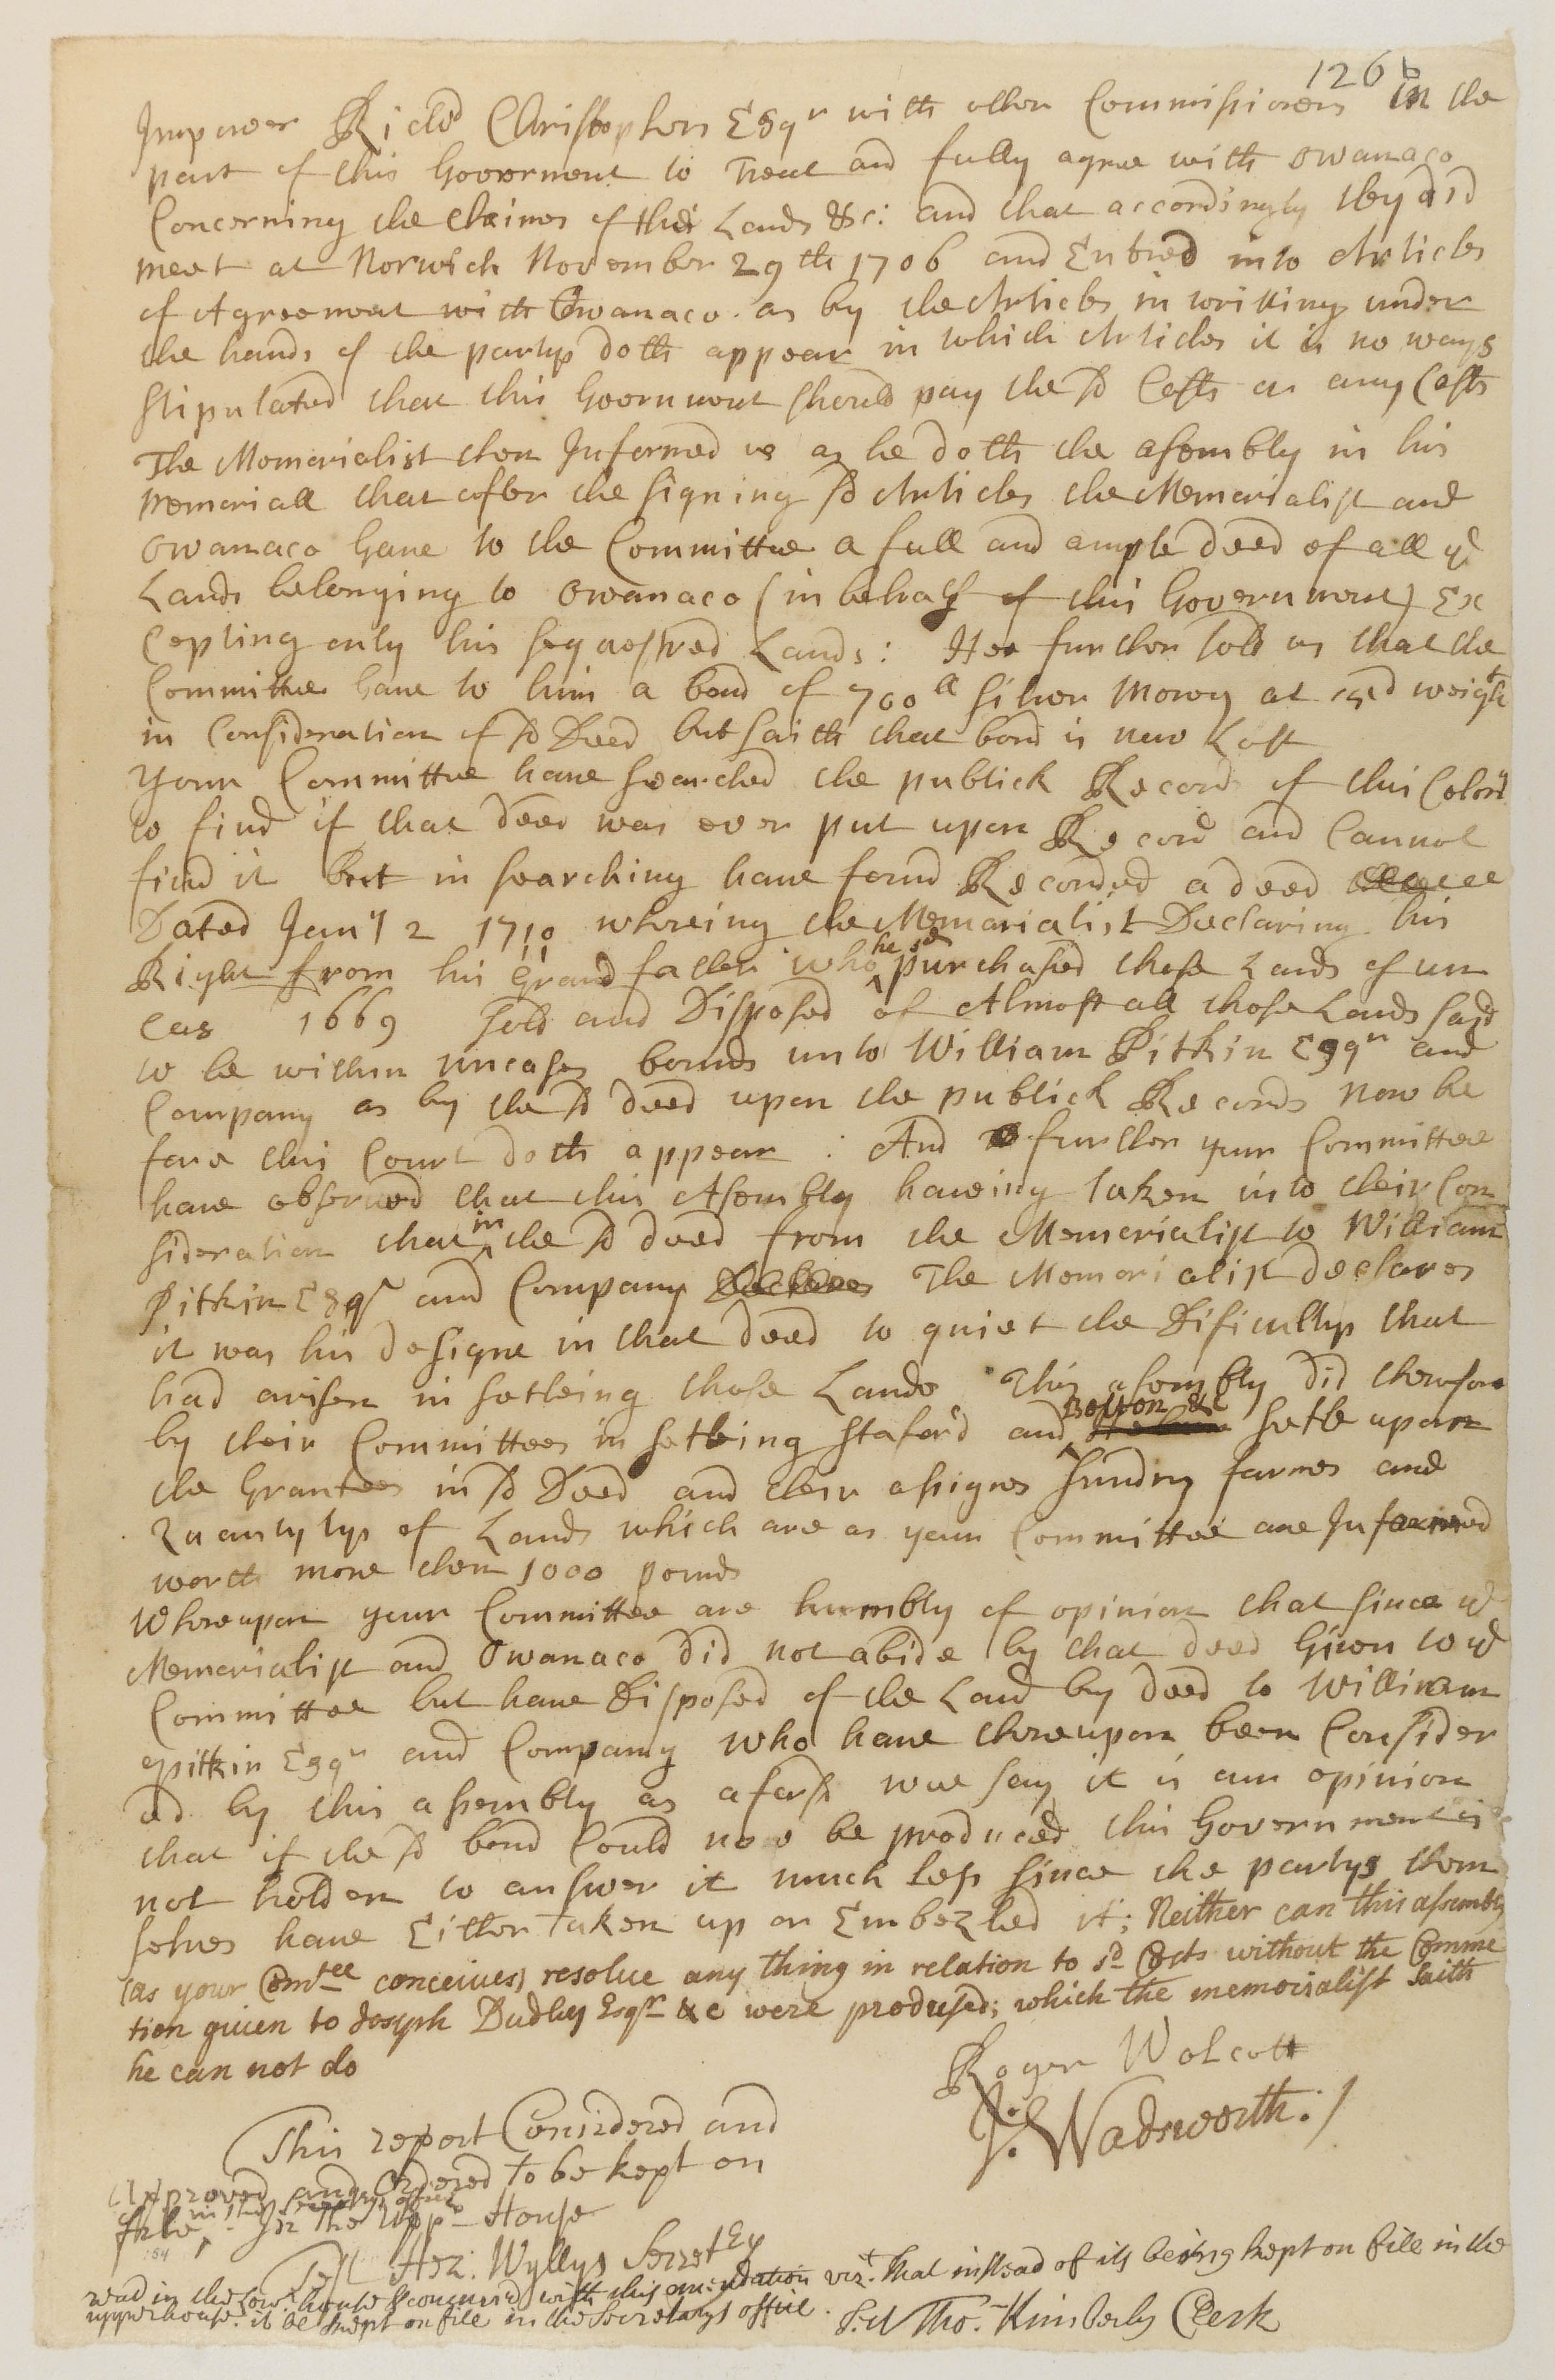 126 b
Impower Richd Christophers Esqr with other Commissioners in the
part of this Goverment to Treat and fully agree with owanaco
Concerning the Claimes of their Lands &c: and that accordingly they did
meet at Norwich November 29th 1706 and Entred into Articles
of Agreement with Owanaco as by the Articles in writting under
the hands of the partys doth appear in which Articles it is no ways
stipulated that this Goverment should pay the sd Costs or any Costs
The Memorialist then Informed us as he doth the asembly in his
memoriall that after the signing sd Articles the Memorialist and
owanaco Gave to the Committee a full and ample deed of all ye
Lands belonging to owanaco (in behalf of this Government) Ex
Cepting only his sequestred Lands: Hee further told us that the
Committee Gave to him a bond of 700 ll silver money at 15d weight
in Consideration of sd Deed but saith that bond is now Lost
Your Committee have searched the publick Records of this Colony
to find if that deed was ever put upon Record and Cannot
find it But in searching have found Recorded a deed
Dated Janry 2 1710 whereing the Memorialist Declaring his
Right from his Grandfather who he sd purchased those Lands of un
cas 1669 sold and Disposed of Almost all those Lands said
to be within uncases bounds unto William Pitkin Esqr and
Company as by the sd deed upon the publick Records now be
fore this Court doth appear : And further your Committee
have observed that this Asembly haveing taken into their Con
sideration that in the sd deed from the Memorialist to William
Pitkin Esqr and Company Declares The Memorialist declares
it was his designe in that deed to quiet the Dificultys that
had arisen in setleing those Lands This asembly did therefore
by their Committees in setleing Staford and Bolton &c setle upon
the Grantees in sd Deed and their asignes sundry farmes and
Quantytys of Lands which are as your Committee are Informed
worth more then 1000 pounds
Whereupon your Committee are humbly of opinion that since ye
Memorialist and Owanaco did not abide by that deed Given to ye
Committee but have Disposed of the Land by deed to William
pitkin Esqr and Company who have thereupon been Consider
ed by this asembly as aforsd wee say it is our opinion
that if the sd bond Could now be produced this Government is
not holden to answer it much less since the partys them
selves have Either taken up or Embezled it; Neither can this asembly
(as your Comtee conceives) resolve any thing in relation to sd Costs without the Comme
tion given to Joseph Dudley Esqr &c were produsced; which the memorialist saith
he can not do
Roger Wolcott
J. Wadsworth./
This report Considered and
Approved and Ordered to be kept on
file in the Secretarys office In the Uppr House
Test Hez: Wyllys Secretry
read in the lowr house & concurrd with this amendation viz. That instead of its being kept on file in the
upper house it be kept on file in the Secretarys office.
Test Tho. Kimberly Clerk